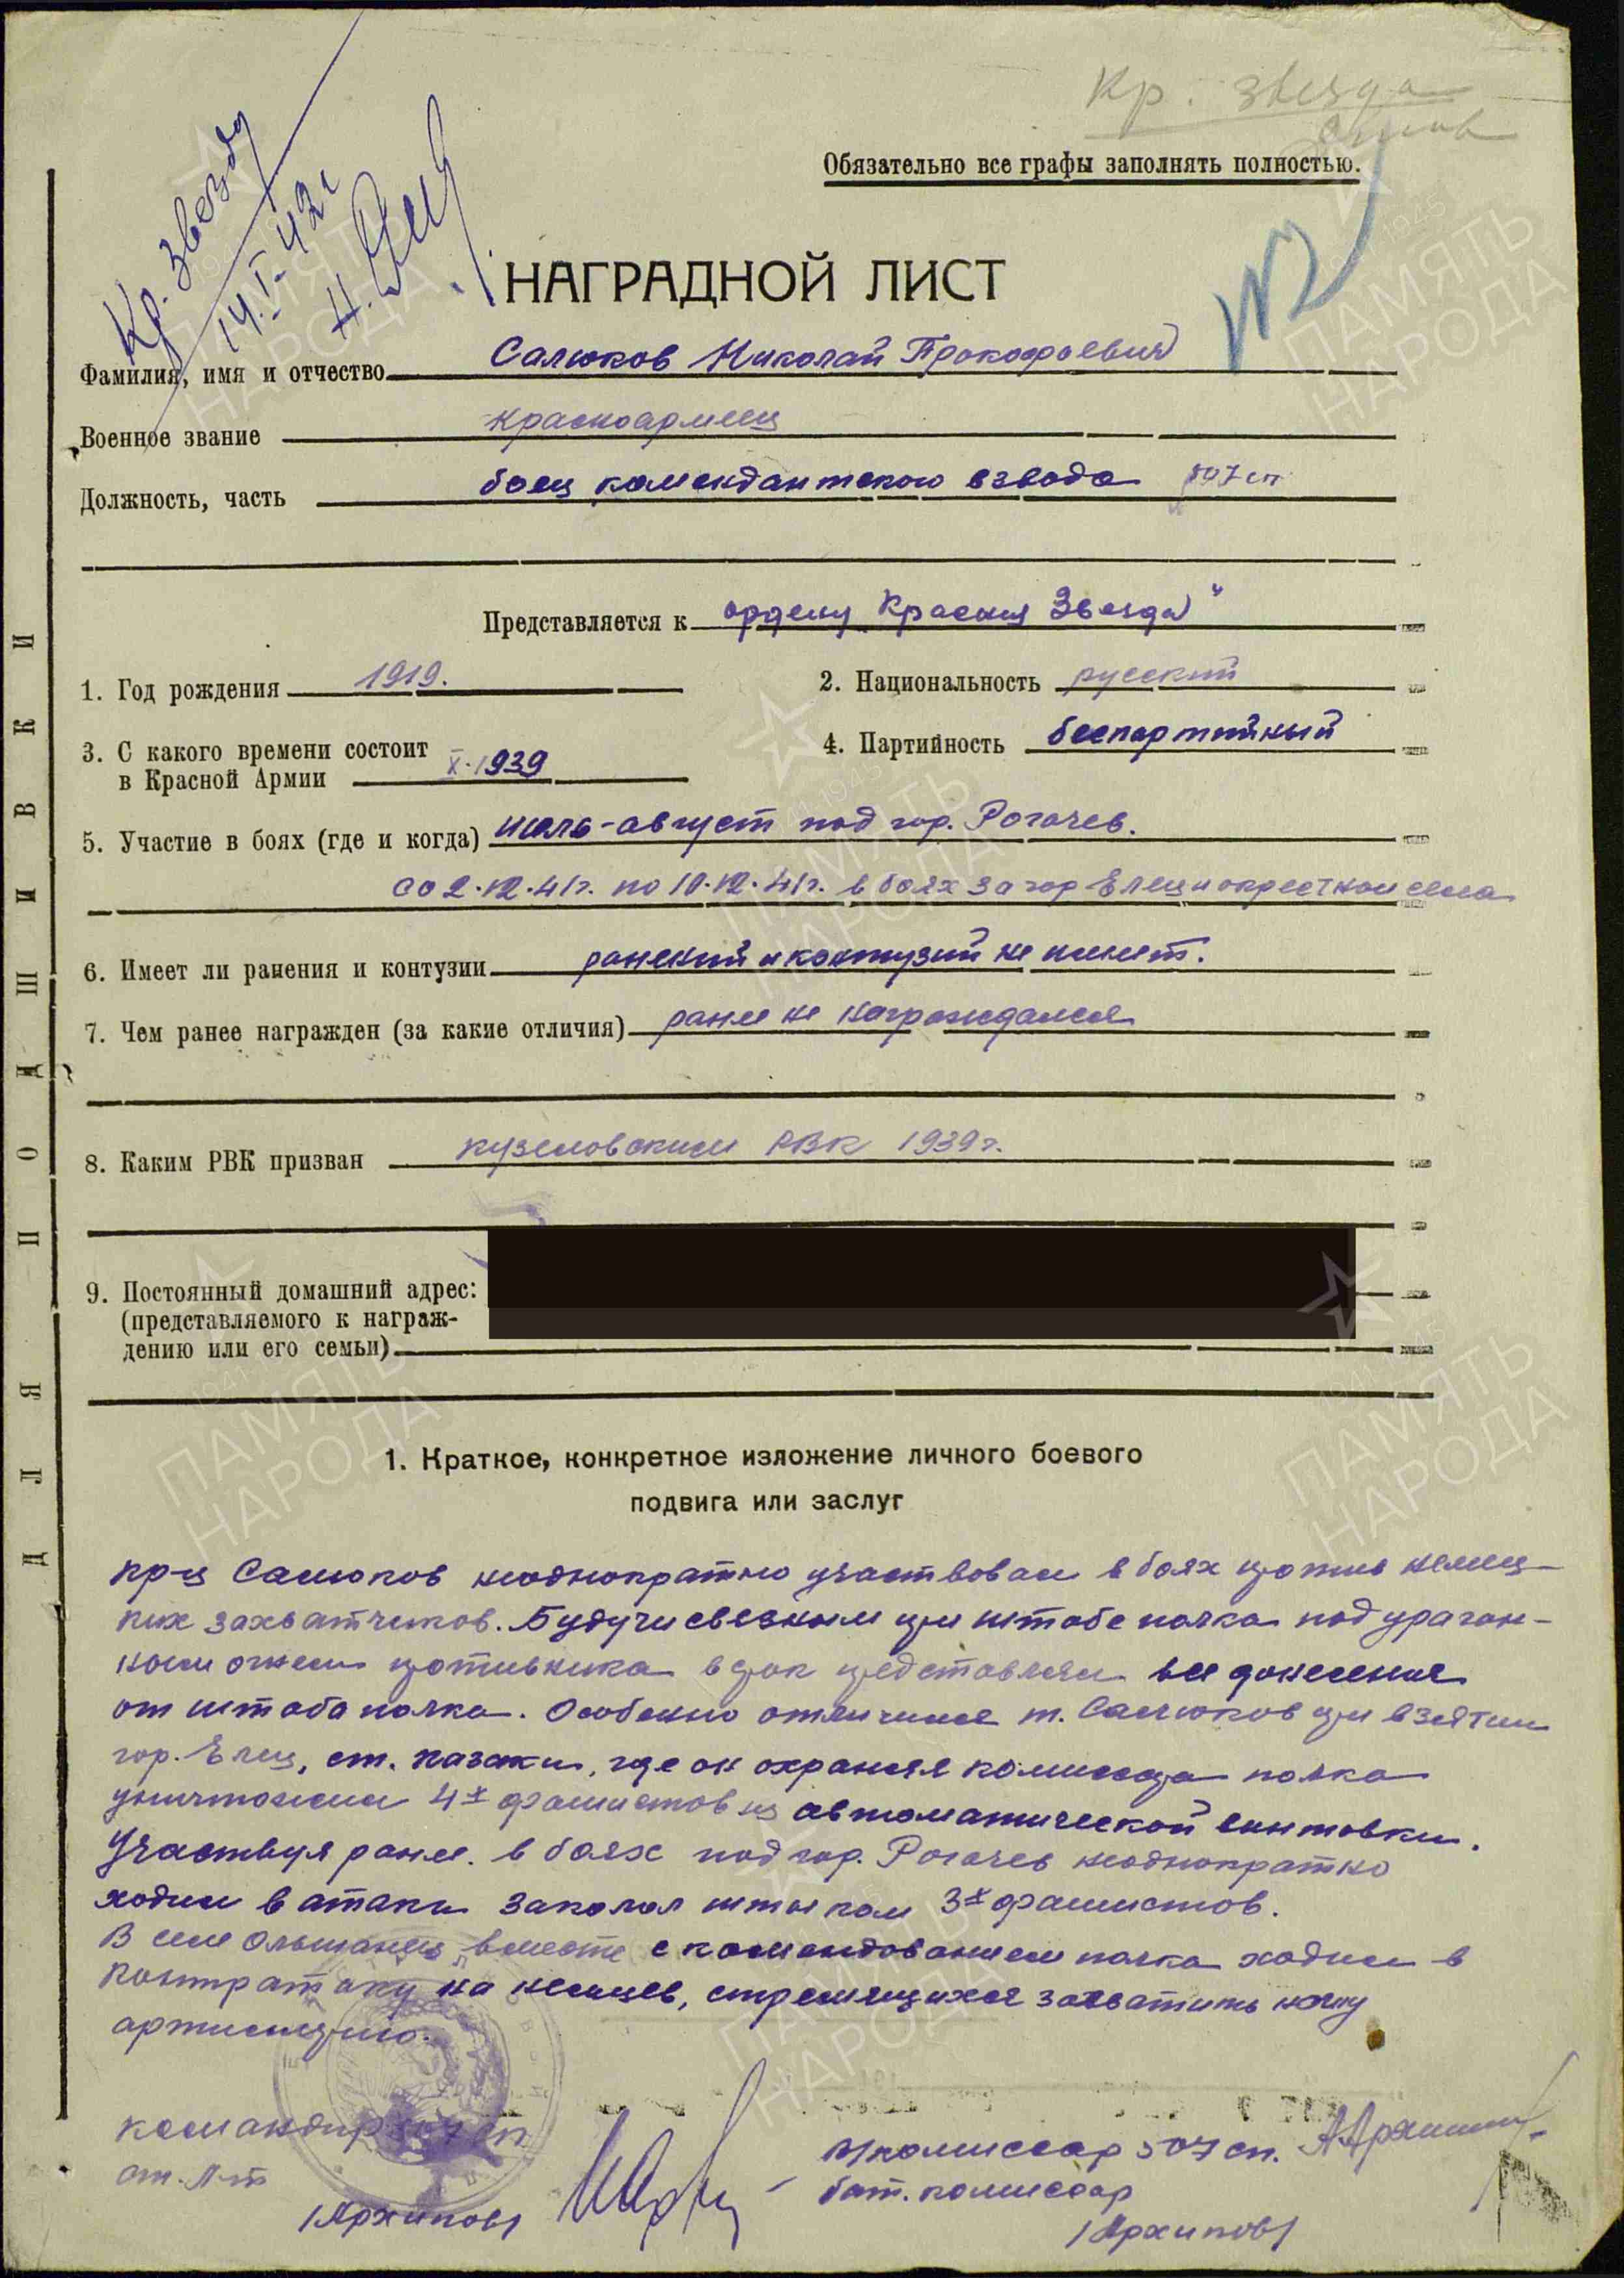 Кр. звезда
Кр. звезду
14.I-42г
Обязательно все графы заполнять полностью.
№2
НАГРАДНОЙ ЛИСТ
Фамилия, имя и отчество Салюков Николай Прокофьевич
Военное звание Красноармеец
Должность, часть боец комендантского взвода 507 сп
Представляется к ордену „Красная Звезда"
1. Год рождения 1919.
2. Национальность русский
3. С какого времени состоит
в Красной Армии X-1939
4. Партийность беспартийный
5. Участие в боях (где и когда) июль-август под гор. Рогачев.
со 2.12.41г. по 10.12.41г. в боях за гор Елец и окрестком села
6. Имеет ли ранения и контузии ранений и контузий не имеет.
7. Чем ранее награжден (за какие отличия) ранее не награждался
8. Каким РВК призван РВК 1939г.
9. Постоянный домашний адрес:
(представляемого к награж-
дению или его семьи)
1. Краткое, конкретное изложение личного боевого
подвига или заслуг
кр-ц Салюков неоднократно участвовал в боях против немец-
ких захватчиков. Будучи связным при штабе полка под ураган-
ным огнем противника в срок представлял все донесения
от штаба полка. Особенно отличился т. Салюков при взятии
гор. Елец, ст. Казаки, где он охраняя комиссара полка
уничтожил 4х фашистов из автоматической винтовки.
Участвуя ранее в боях под гор. Рогачев неоднократно
ходил в атаки заколол штыком 3х фашистов.
В селе Ольшанец вместе с командованием полка ходил в
контратаку на немцев, стремящихся захватить нашу
артиллерию.
командир 507 сп
ст. л-т
/Архипов/
комиссар 507 сп.
бат. комиссар
/Архипов/
ДЛЯ ПОДШИВКИ
ПАМЯТЬ
НАРОДА
1941-1945